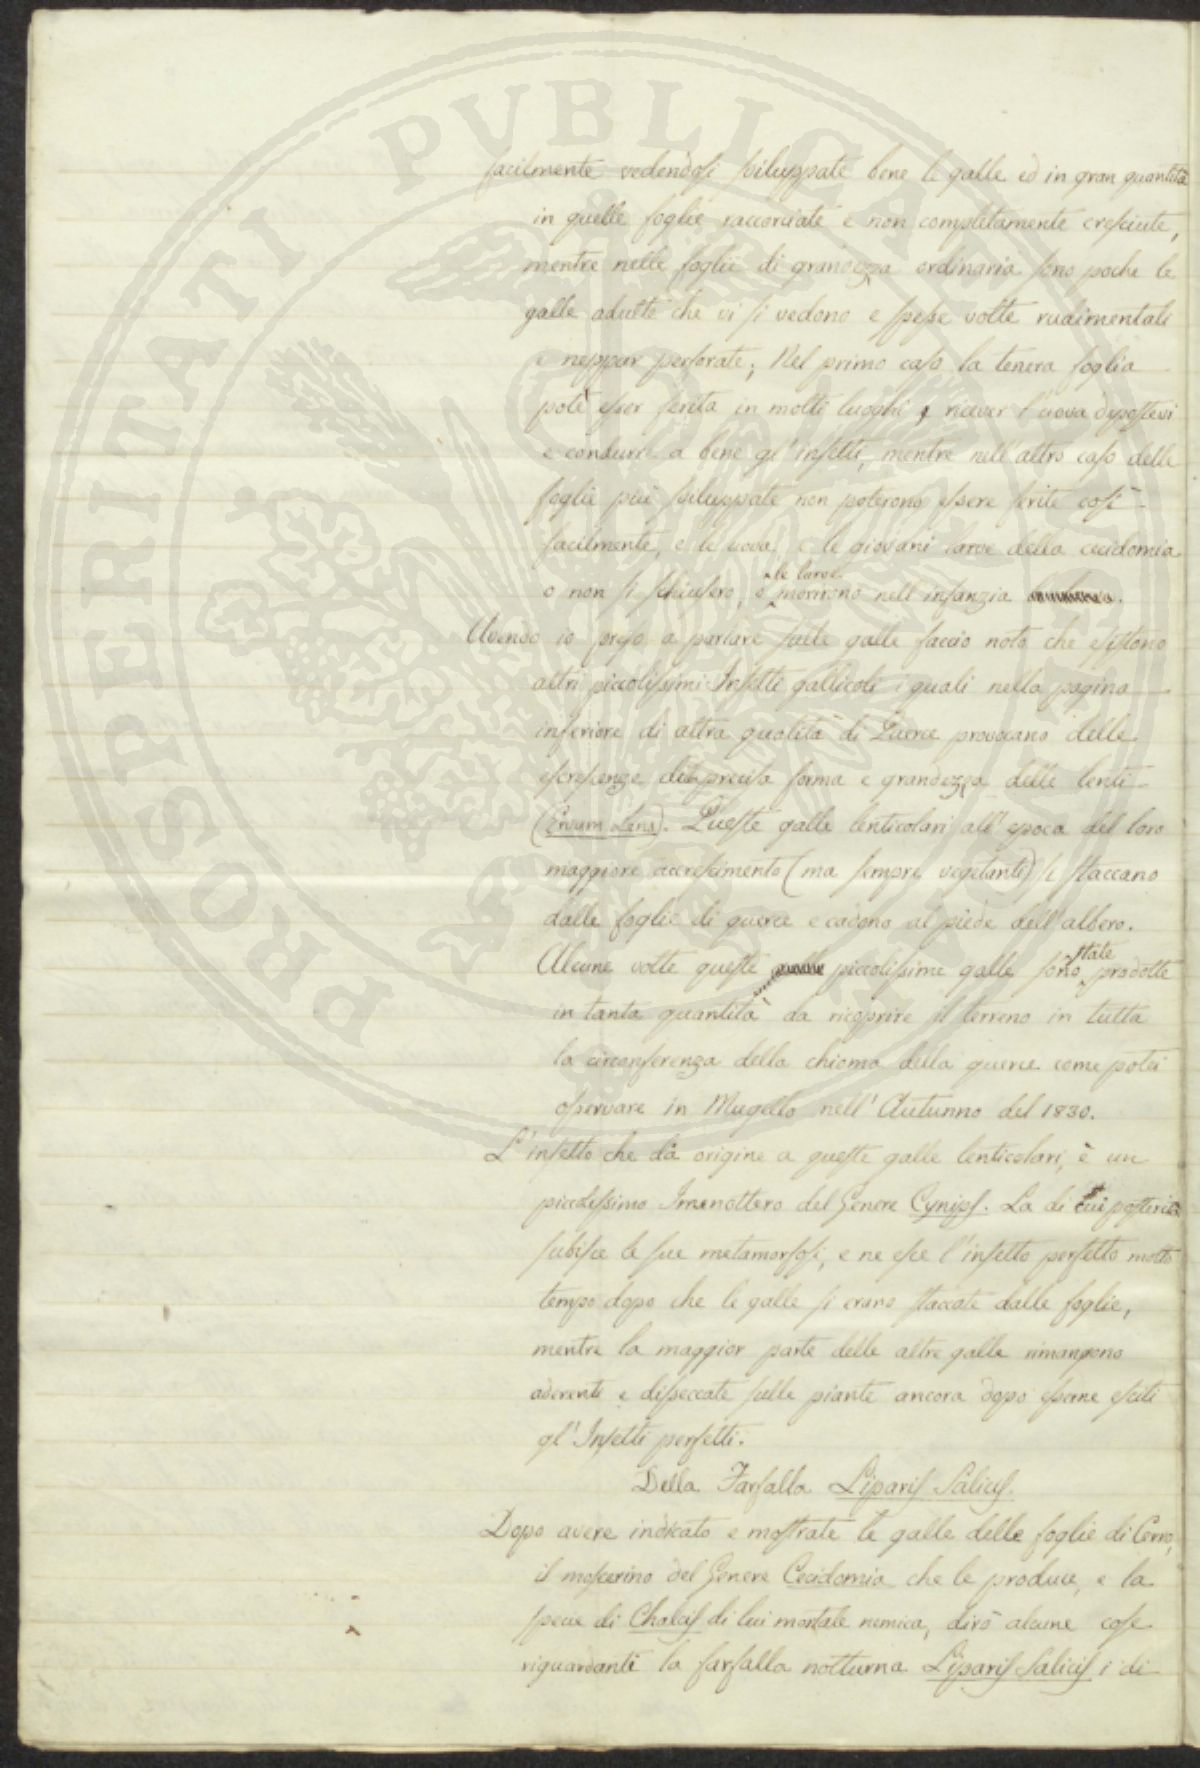 facilmente vedendosi sviluppate bene le galle ed in gran quantità
in quelle foglie raccorciate e non completamente cresciute,
mentre nelle foglie di grandezza ordinaria sono poche le
galle adulte che vi si vedono e spesse volte rudimentali
e neppur perforate; Nel primo caso la tenera foglia
potè esser ferita in molti luoghi, ricever l'uova depostevi
e condurre a bene gl'insetti, mentre nell'altro caso delle
foglie più sviluppate non poterono essere ferite così
facilmente, e le uova e le giovani larve della cecidomia
o non si schiusero, o le larve morirono nell'infanzia.
Avendo io preso a parlare sulle galle faccio noto che esistono
altri piccolissimi Insetti gallicoli i quali nella pagina
inferiore di altra qualità di Querce provocano delle
escresenze della precisa forma e grandezza delle lenti
(Ervum Lens). Queste galle lenticolari all'epoca del loro
maggiore accrescimento (ma sempre vegetanti) si staccano
dalle foglie di querce e cadono al piede dell'albero.
Alcune volte queste piccolissime galle sono state prodotte
in tanta quantità da ricoprire il terreno in tutta
la circonferenza della chioma della querce come potei
osservare in Mugello nell'Autunno del 1830.
L'insetto che dà origine a queste galle lenticolari, è un
piccolissimo Imenottero del Genere Cynips. La di cui posterità
subisce le sue metamorfosi, e ne esce l'insetto perfetto molto
tempo dopo che le galle si erano staccate dalle foglie,
mentre la maggior parte delle altre galle rimangono
aderenti e disseccate sulle piante ancora dopo esserne esciti
gl'Insetti perfetti.
Della Farfalla Liparis Salicis.
Dopo avere indicato e mostrate le galle delle foglie di Cerro,
il moscerino del Genere Cecidomia che le produce, e la
specie di Chalcis di lui mortale nemica, dirò alcune cose
riguardanti la farfalla notturna Liparis Salicis i di
PROSPERITATI PUBLICAE